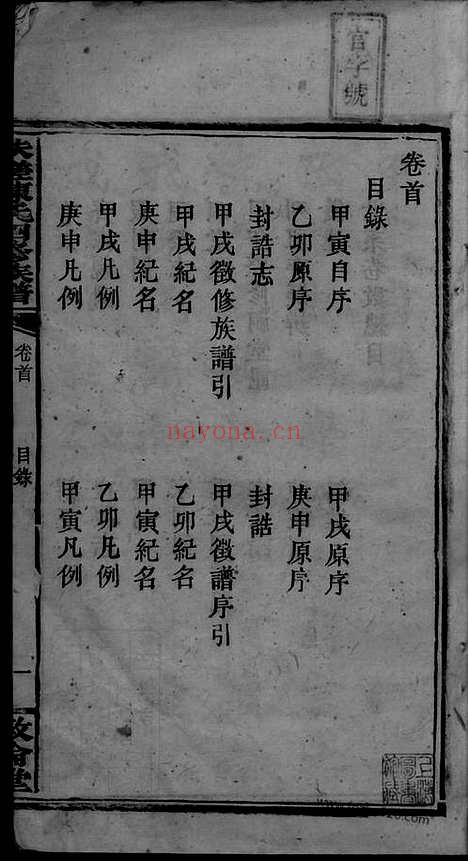 官字號
卷首
目錄
甲寅自序　甲戌原序
乙卯原序　庚申原序
封誥志　封誥
甲戌徵修族譜引　甲戌徵譜序引
甲戌紀名　乙卯紀名
庚申紀名　甲寅紀名
甲戌凡例　乙卯凡例
庚申凡例　甲寅凡例
卷首　目錄　一　敦倫堂
nayona.cn